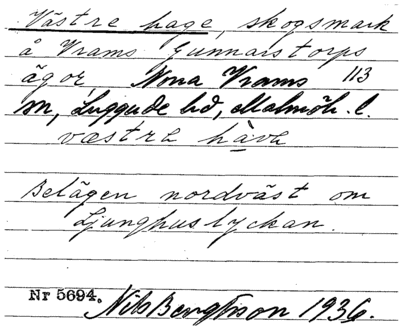 Västre hage, skogsmark
å Vrams Gunnarstorps
ägor, Nora Vrams 113
sn, Luggude hd, Malmöh. l.
væstrɘ hàvɘ
Belägen nordväst om
Ljunghuslyckan.
Nr 5694. Nils Bengtsson 1936.